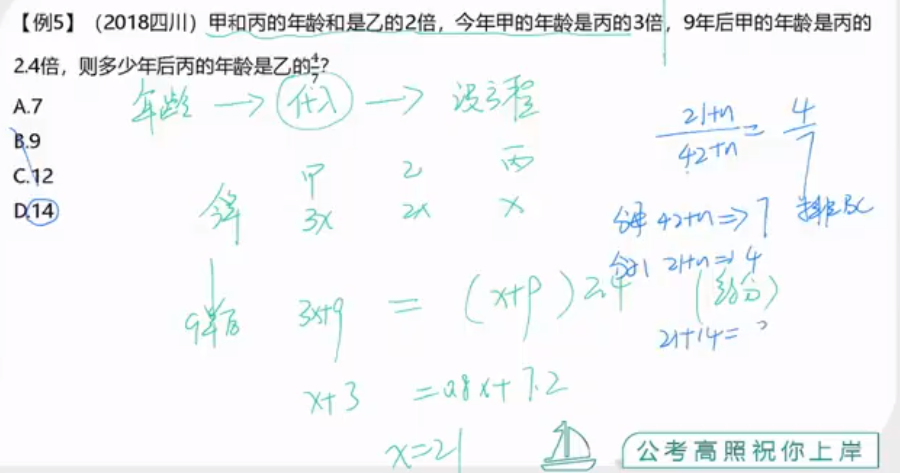 【例5】（2018四川）甲和丙的年龄和是乙的2倍，今年甲的年龄是丙的3倍，9年后甲的年龄是丙的
2.4倍，则多少年后丙的年龄是乙的4/7?
A.7
B.9
C.12
D.14
年龄 → 代入 → 设方程
甲 乙 丙
今年 3x 2x x
9年后 3x+9 = (x+9)2.4
x+3 =0.8x+7.2
x=21
21+n/42+n = 4/7
分母 42+n=>7 排除BC
分子 21+n=>4
(约分)
21+14= ?
公考高照祝你上岸